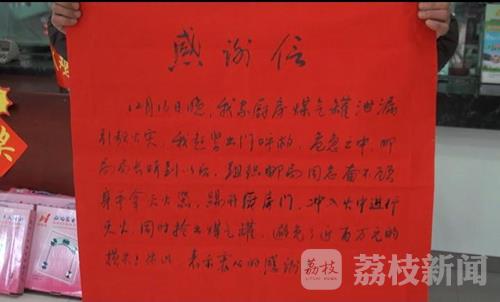 感谢信
12月16日晚,我家厨房煤气罐泄漏
引放火灾,我赶紧出门呼救,危急之中,邮
局局长听到以后,组织邮局同志奋不顾
身手拿灭火器,踢开厨房门,冲入火中进行
灭火,同时抢出煤气罐,避免了近百万元的
损失,表示衷心的感谢
荔枝
荔枝新闻
奖